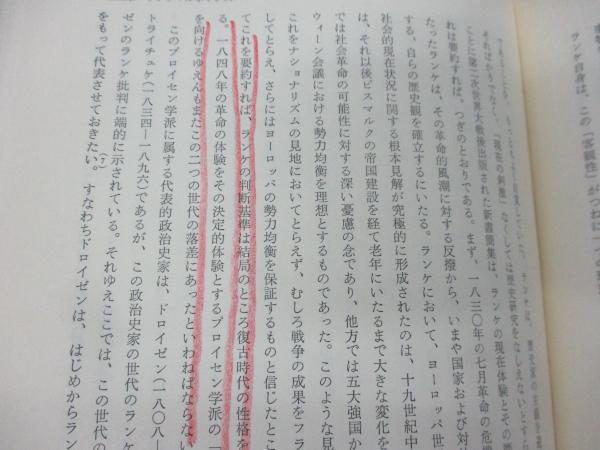 ランケ自身は、この「客観性」がつねに
そればかりでなく、「現在の刺激」なくしては歴史研究をなしえないとす
ことに第二次世界大戦後出版された新書簡集は、ランケの現在体験とその歴
れは要約すれば、つぎのとおりである。まず、一八三〇年の七月革命の危機
たったランケは、その革命的風潮に対する反撥から、いまや国家および対
する、自らの歴史観を確立するにいたる。ランケにおいて、ヨーロッパ世
社会的現在状況に関する根本見解が究極的に形成されたのは、十九世紀中
は、それ以後ビスマルクの帝国建設を経て老年にいたるまで大きな変化を
では社会革命の可能性に対する深い憂慮の念であり、他方では五大強国か
ウィーン会議における勢力均衡を理想とするものであった。このような見
これをナショナリズムの見地においてとらえず、むしろ戦争の成果をフラ
してとらえ、さらにはヨーロッパの勢力均衡を保証するものと信じたとこ
てこれを要約すれば、ランケの判断基準は結局のところ復古時代の性格を
る。一八四八年の革命の体験をその決定的体験とするプロイセン学派の「
を向けるゆえんもまたこの二つの世代の落差にあったといわねばならない
このプロイセン学派に属する代表的政治史家は、ドロイゼン(一八〇八―
ドライチュケ(一八三四―一八九六)であるが、この政治史家の世代のランケ
ゼンのランケ批判に端的に示されている。それゆえここでは、この世代の
をもって代表させておきたい。(7) すなわちドロイゼンは、はじめからラン